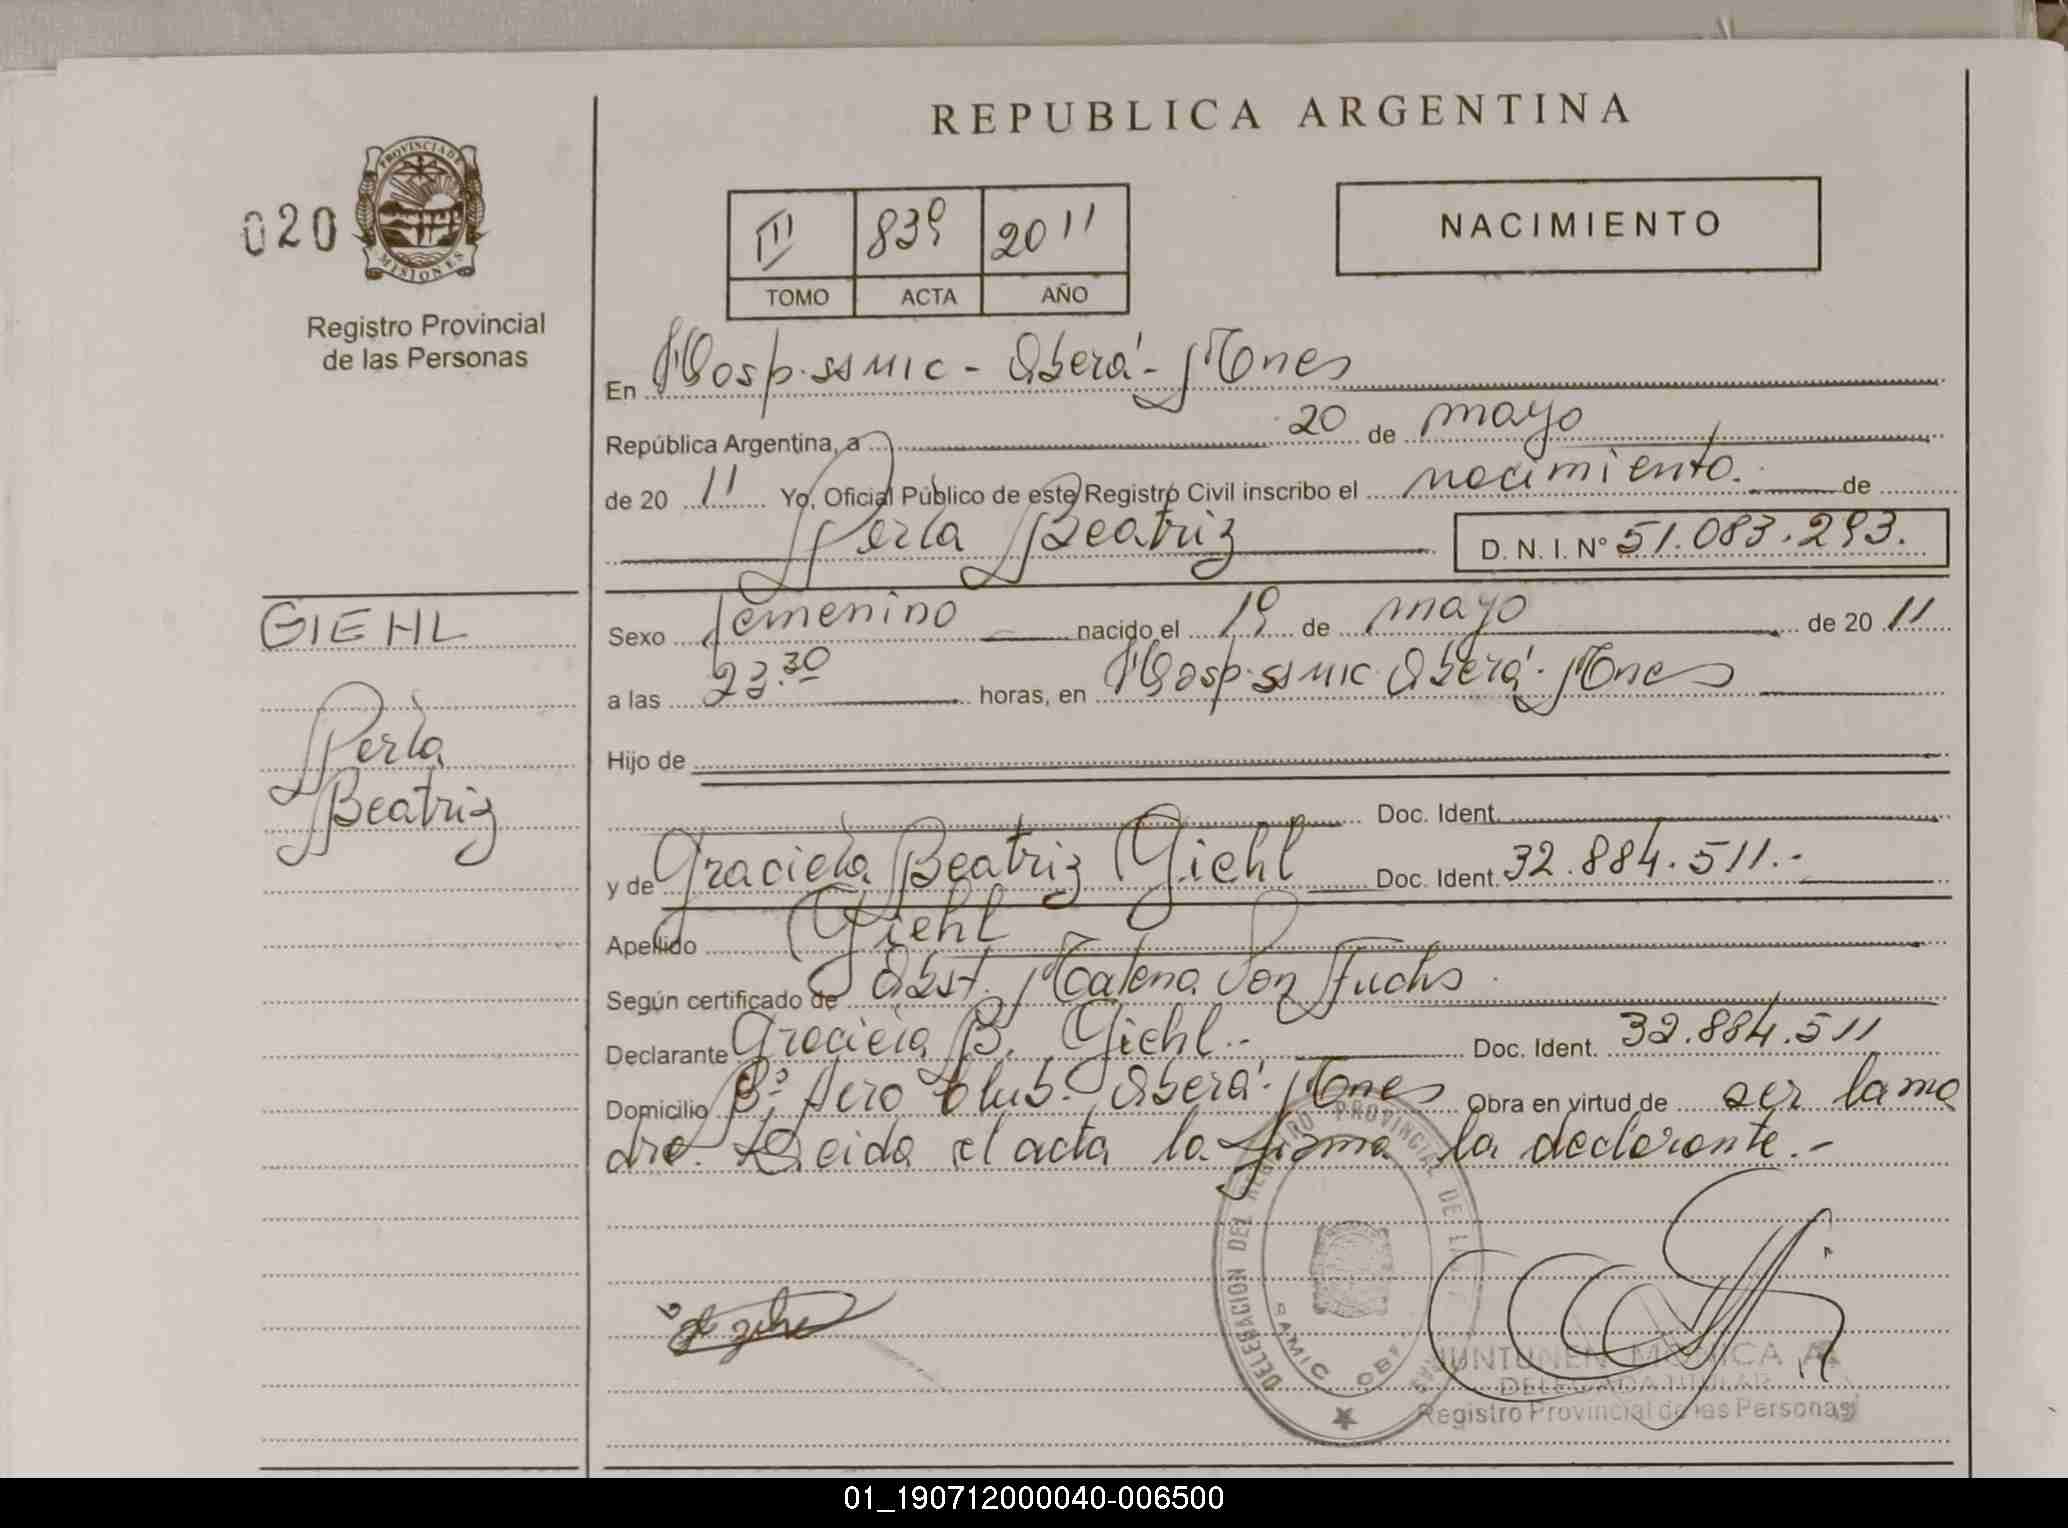 REPUBLICA ARGENTINA
PROVINCIA DE
MISIONES
020
Registro Provincial
de las Personas
III 839 2011
TOMO ACTA AÑO
NACIMIENTO
En Hosp. SSMIC - Oberá - Mnes
República Argentina, a 20 de mayo
de 20 11 Yo, Oficial Público de este Registro Civil inscribo el nacimiento. de
Perla Beatriz D. N. I. Nº 51.083.293.
GIEHL
Perla
Beatriz
Sexo femenino nacido el 19 de mayo de 20 11
a las 23.30 horas, en Hosp. SSMIC. Oberá. Mnes
Hijo de
Doc. Ident.
y de Graciela Beatriz Giehl Doc. Ident. 32.884.511.-
Apellido Giehl
Según certificado de Obst. Malena Von Fuchs
Declarante Graciela B. Giehl.- Doc. Ident. 32.884.511
Domicilio Bº Aero Club. Oberá. Mnes Obra en virtud de ser la ma
dre. Leida el acta la firma la declarante.-
DELEGACION DEL REGISTRO PROVINCIAL DE LAS
SAMIC OBE
JUNTUNEN MONICA A.
DELEGADA TITULAR
Registro Provincial de las Personas
01_190712000040-006500